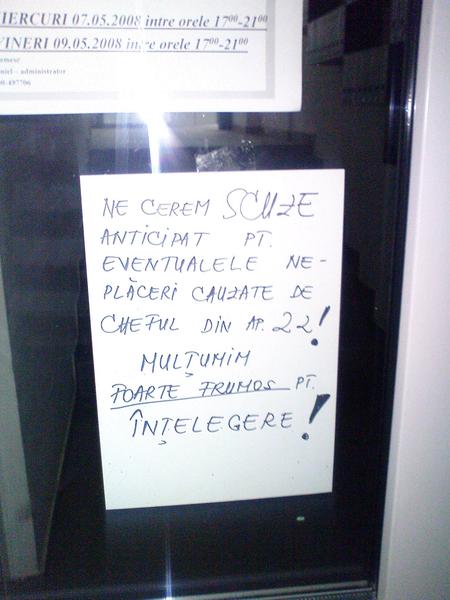 MIERCURI 07.05.2008 intre orele 17⁰⁰-21⁰⁰
VINERI 09.05.2008 intre orele 17⁰⁰-21⁰⁰
administrator
NE CEREM SCUZE
ANTICIPAT PT.
EVENTUALELE NE-
PLĂCERI CAUZATE DE
CHEFUL DIN AP. 22!
MULȚUMIM
FOARTE FRUMOS PT.
ÎNȚELEGERE!